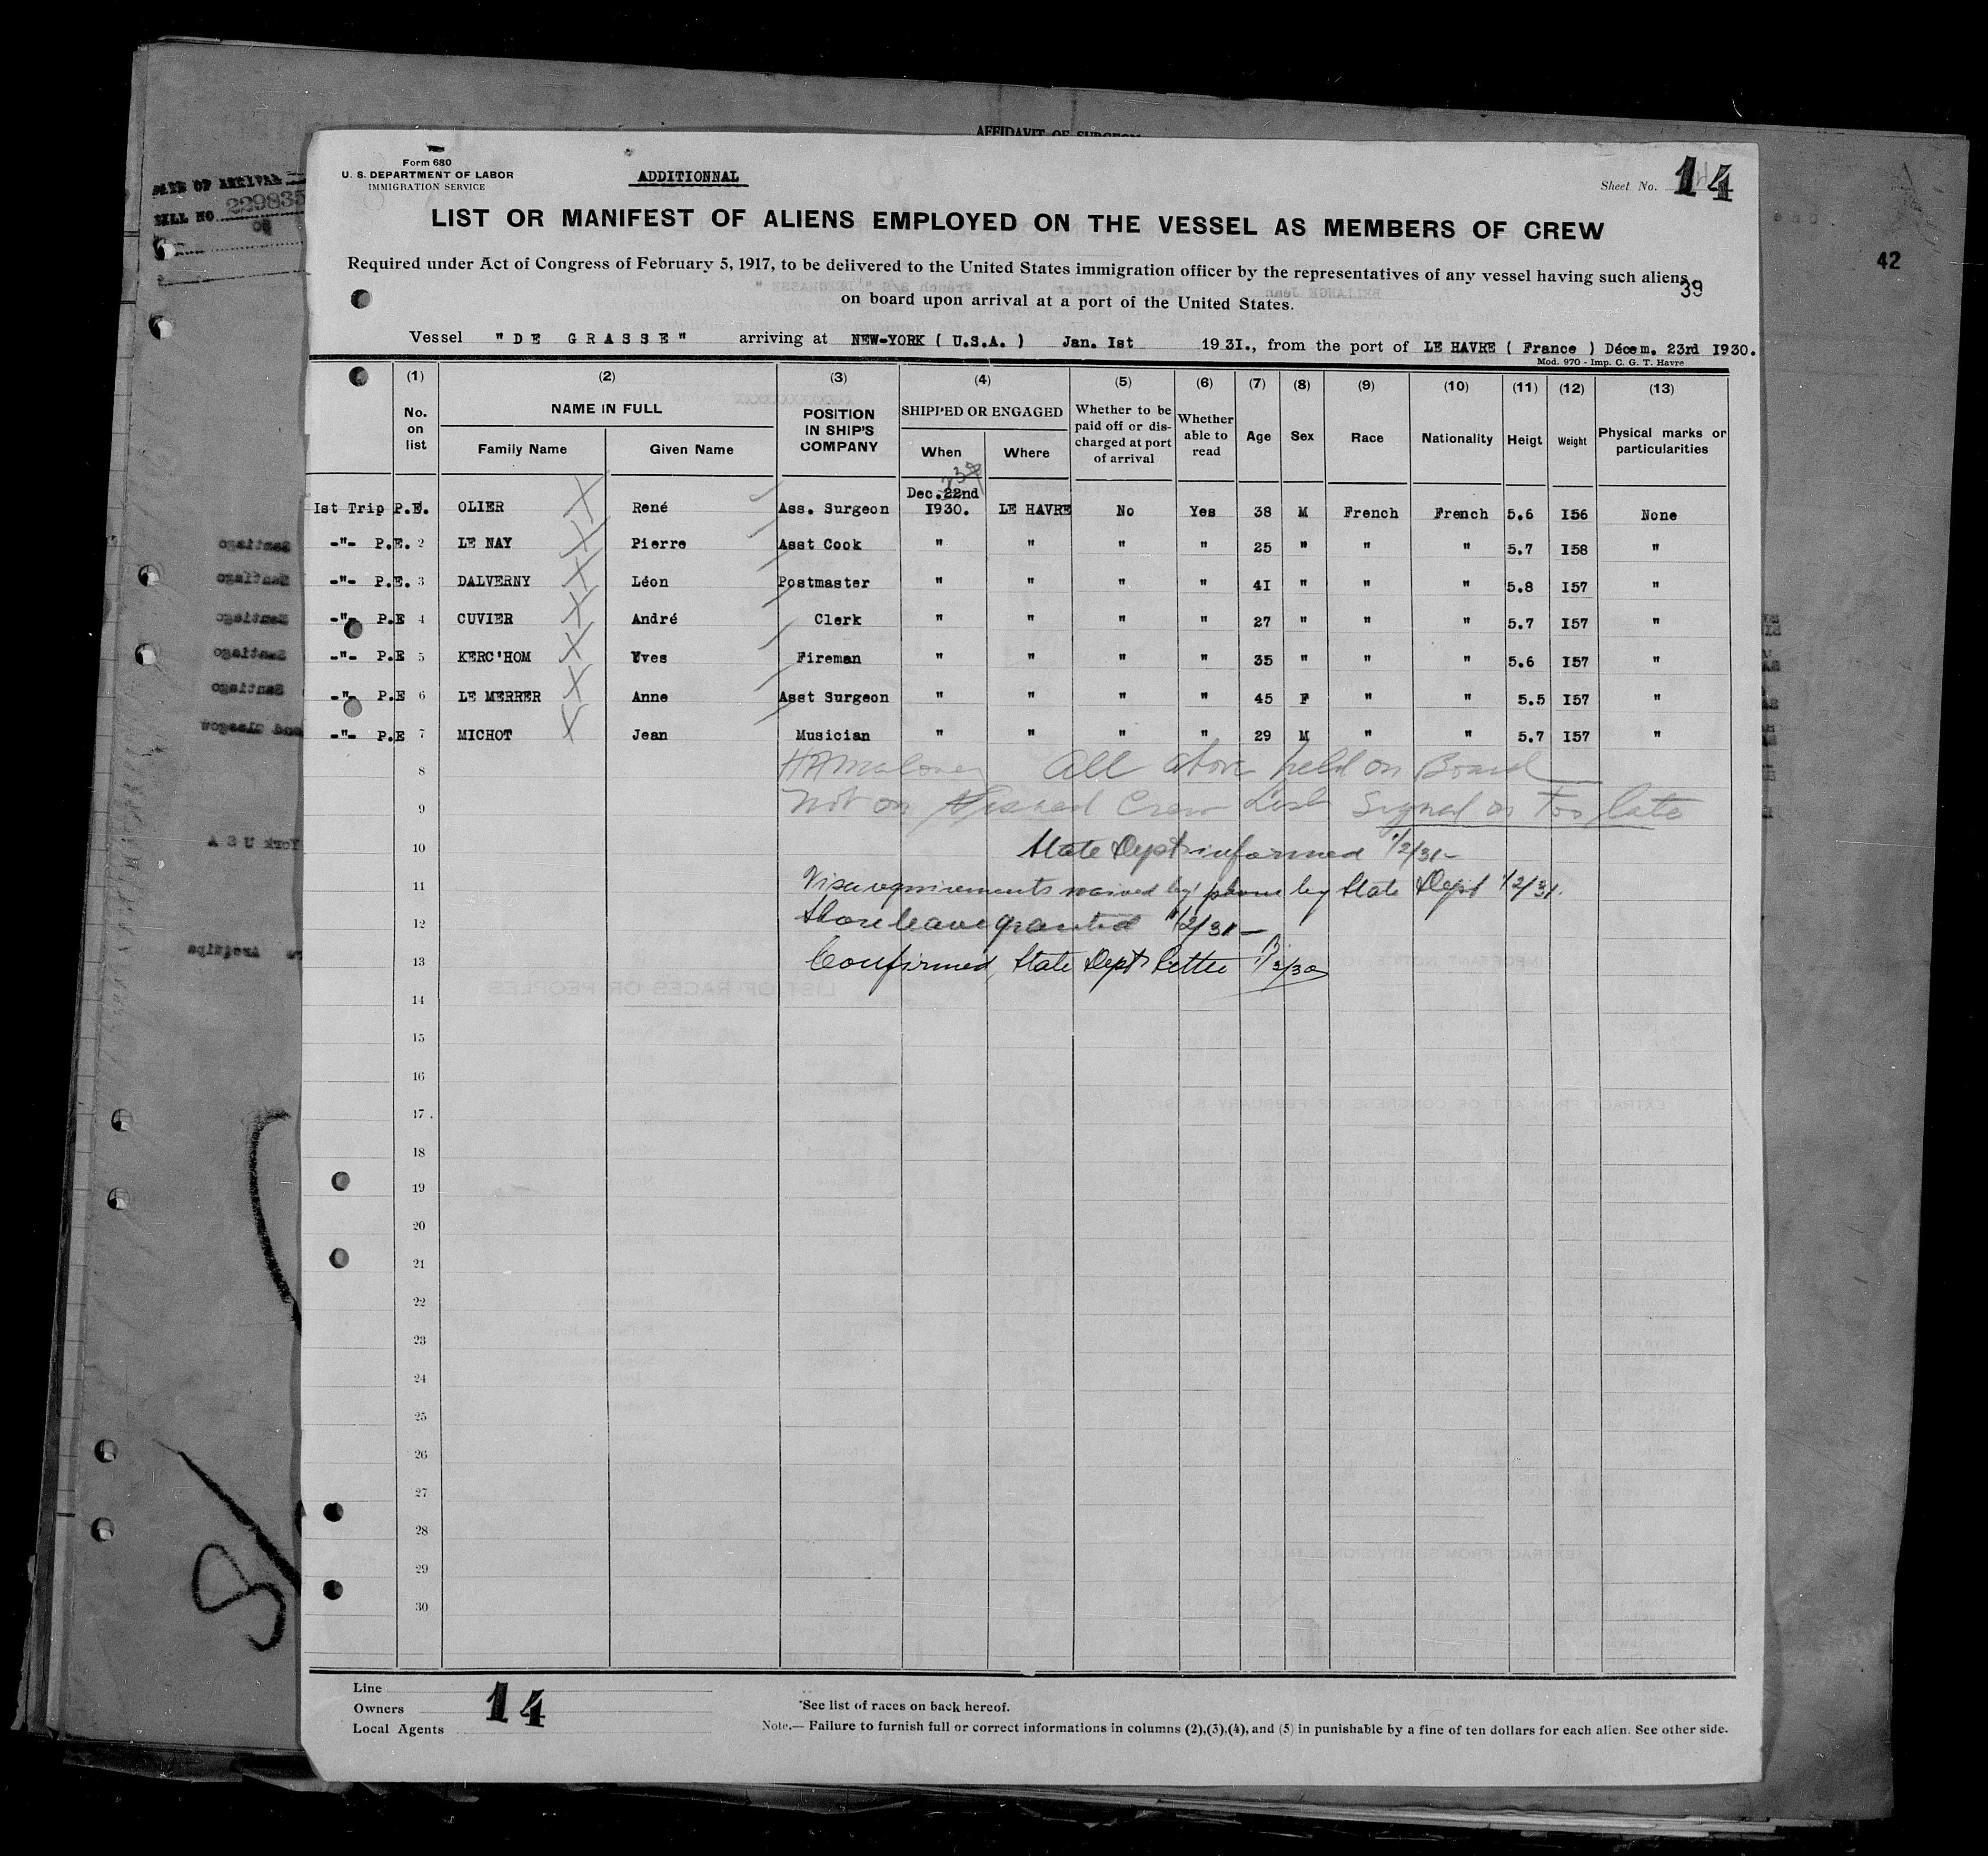 AFFIDAVIT OF SURGEON
DATE OF ARRIVAL
BILL NO 229835
42
Form 680
U. S. DEPARTMENT OF LABOR
IMMIGRATION SERVICE
ADDITIONNAL
Sheet No. 14
LIST OR MANIFEST OF ALIENS EMPLOYED ON THE VESSEL AS MEMBERS OF CREW
Required under Act of Congress of February 5, 1917, to be delivered to the United States immigration officer by the representatives of any vessel having such aliens
39
on board upon arrival at a port of the United States.
Vessel "DE GRASSE" arriving at NEW-YORK ( U.S.A. ) Jan. Ist 1931., from the port of LE HAVRE ( France ) Décem. 23rd 1930.
Mod. 970 - Imp. C. G. T. Havre
(1) (2) (3) (4) (5) (6) (7) (8) (9) (10) (11) (12) (13)
No. on list NAME IN FULL Family Name Given Name POSITION IN SHIP'S COMPANY SHIPPED OR ENGAGED When Where Whether to be paid off or discharged at port of arrival Whether able to read Age Sex Race Nationality Heigt Weight Physical marks or particularities
Ist Trip P.E. OLIER René Ass. Surgeon Dec.22nd 1930. LE HAVRE No Yes 38 M French French 5.6 I56 None
-"- P.E. 2 LE NAY Pierre Asst Cook " " " " 25 " " " 5.7 I58 "
-"- P.E. 3 DALVERNY Léon Postmaster " " " " 4I " " " 5.8 I57 "
-"- P.E 4 CUVIER André Clerk " " " " 27 " " " 5.7 I57 "
-"- P.E 5 KERC'HOM Yves Fireman " " " " 35 " " " 5.6 I57 "
-"- P.E 6 LE MERRER Anne Asst Surgeon " " " " 45 F " " 5.5 I57 "
-"- P.E 7 MICHOT Jean Musician " " " " 29 M " " 5.7 I57 "
8 All above held on Board
9 Not on Visaed Crew List Signed on Too late
10 State Dept informed 1/2/31-
11 Visa requirements waived by phone by State Dept 1/2/31.
12 Shore leave granted 1/2/31-
13 Confirmed, State Dept Letter 1/3/30
14
15
16
17
18
19
20
21
22
23
24
25
26
27
28
29
30
Line
Owners
Local Agents
14
*See list of races on back hereof.
Note.— Failure to furnish full or correct informations in columns (2),(3),(4), and (5) in punishable by a fine of ten dollars for each alien. See other side.